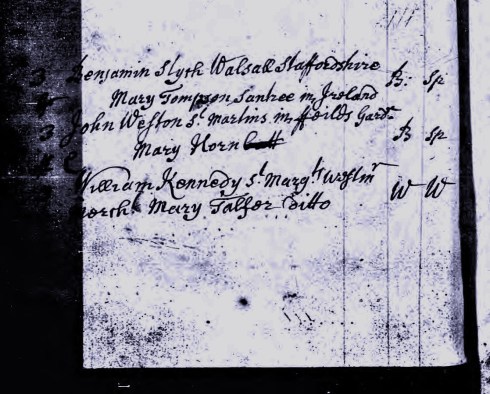 3 Benjamin Slyth Walsall Staffordshire B: Sp
Mary Tompson Sankee in Ireland
3 John Weston St. Martins in ffeilds Gardr B Sp
Mary Horn
William Kennedy St Margts Westmr W W
Merch Mary Talfer Ditto